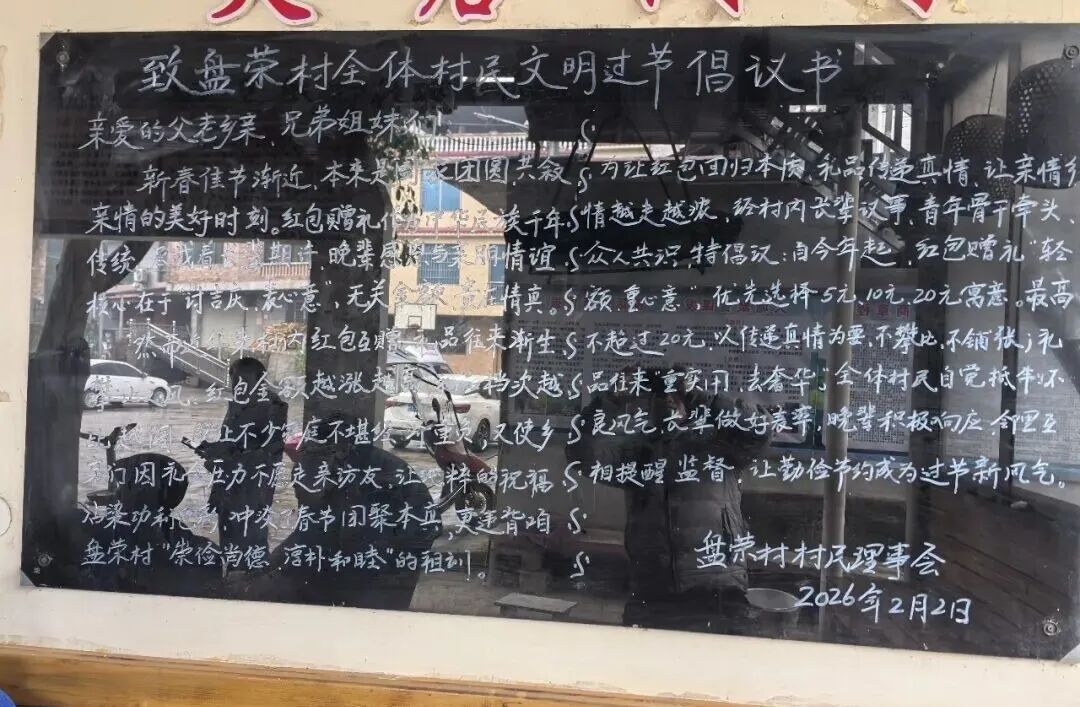 致盘荣村全体村民文明过节倡议书
亲爱的父老乡亲、兄弟姐妹们
新春佳节渐近,本来是 团圆,共叙
亲情的美好时刻。红包赠礼作为中华民族千年
传统, 载着长辈期许,晚辈感恩与亲朋情谊,
核心在于"讨吉庆、表心意",无关金额 情真。
然而近 村内红包互赠、礼品往来渐生
攀 风,红包金额越涨越 档次越
让不少家庭不堪 又使乡
亲们因礼金压力不愿走亲访友,让纯粹的祝福
沾染功利色彩,冲淡了春节团聚本真,更违背咱
盘荣村"崇俭尚德 淳朴和睦"的祖训。
为让红包回归本质,礼品传递真情,让亲情乡
情越走越浓,经村内长辈议事、青年骨干牵头、
众人共识,特倡议:自今年起,红包赠礼"轻
额重心意"优先选择5元、10元、20元寓意。最高
不超过20元,以传递真情为要,不攀比,不铺张;礼
品往来"重实用,去奢华",全体村民自觉抵制不
良风气,长辈做好表率,晚辈积极响应,邻里互
相提醒监督,让勤俭节约成为过节新风气。
盘荣村村民理事会
2026年2月2日